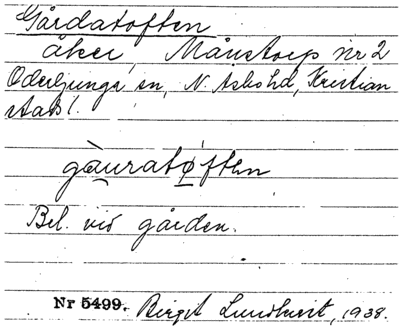 Gårdatoften
åker, Månstorp nr 2
Oderljunga sn, N. Åsbo hd, Kristian
stads l.
gàuratǿften
Bel. vid gården.
Nr 5499. Birgit Lundkvist, 1938.